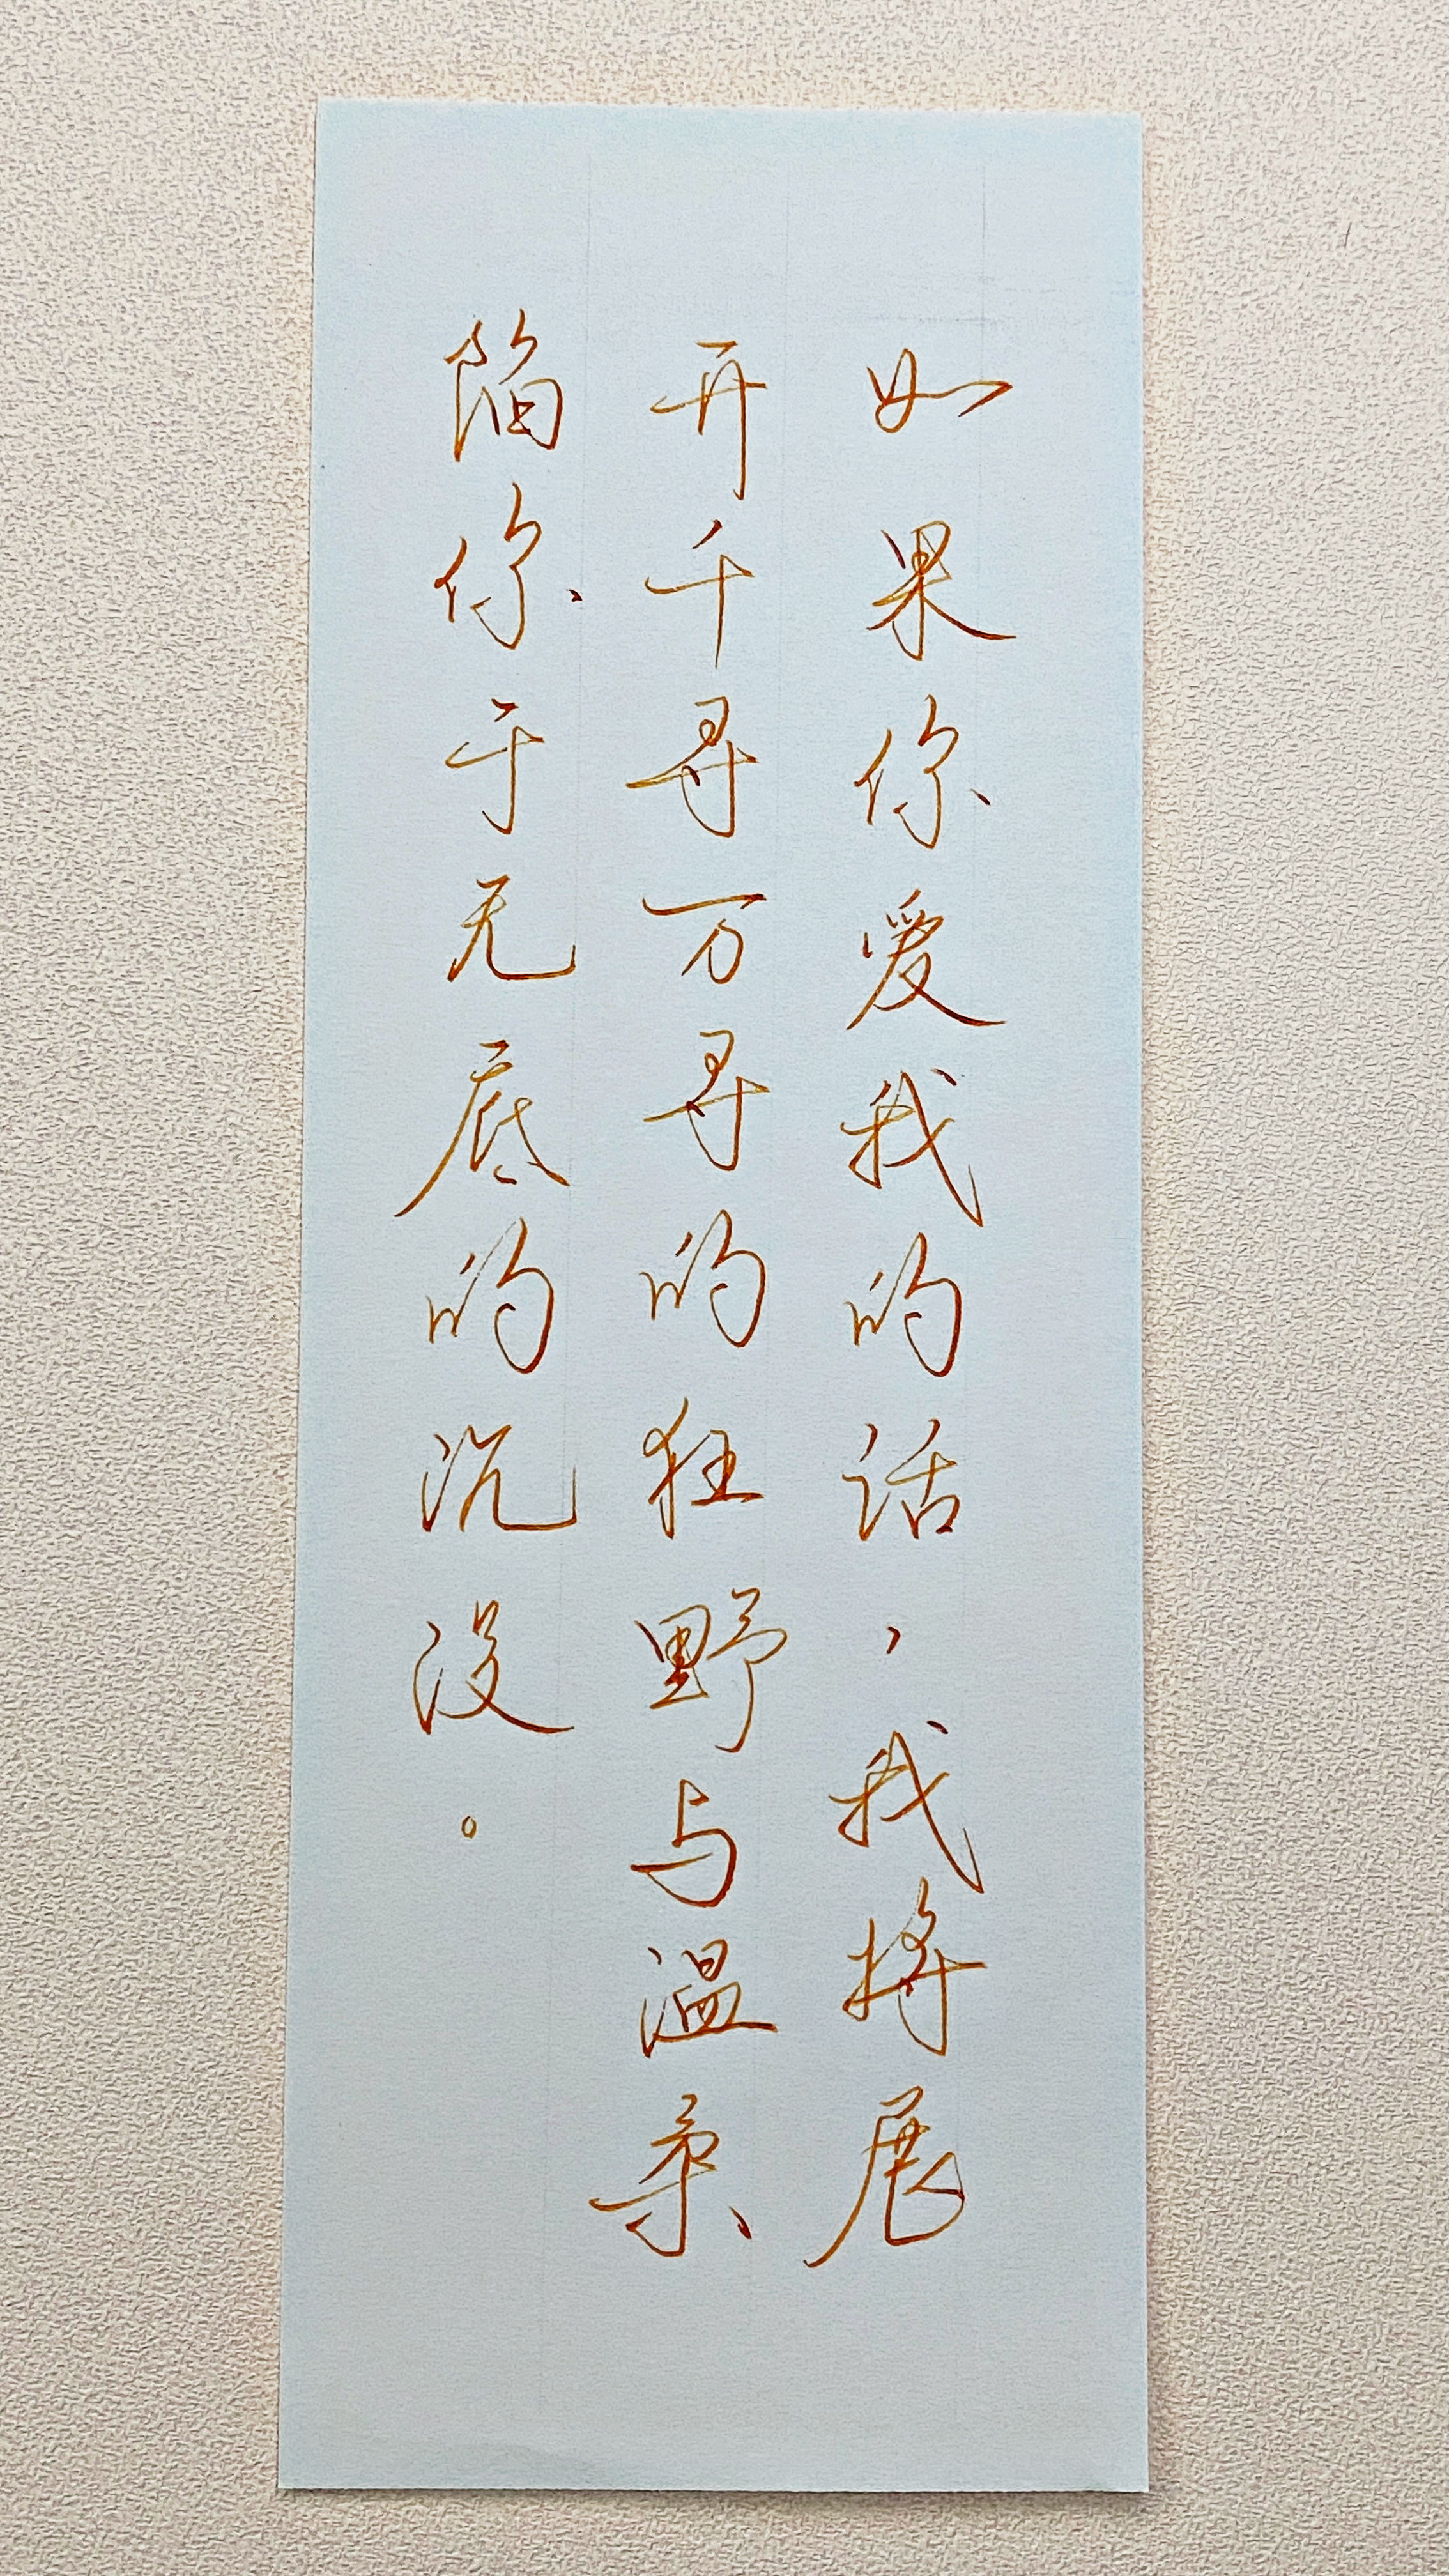 如果你爱我的话，我将展
开千寻万寻的狂野与温柔
陷你于无底的沉没。